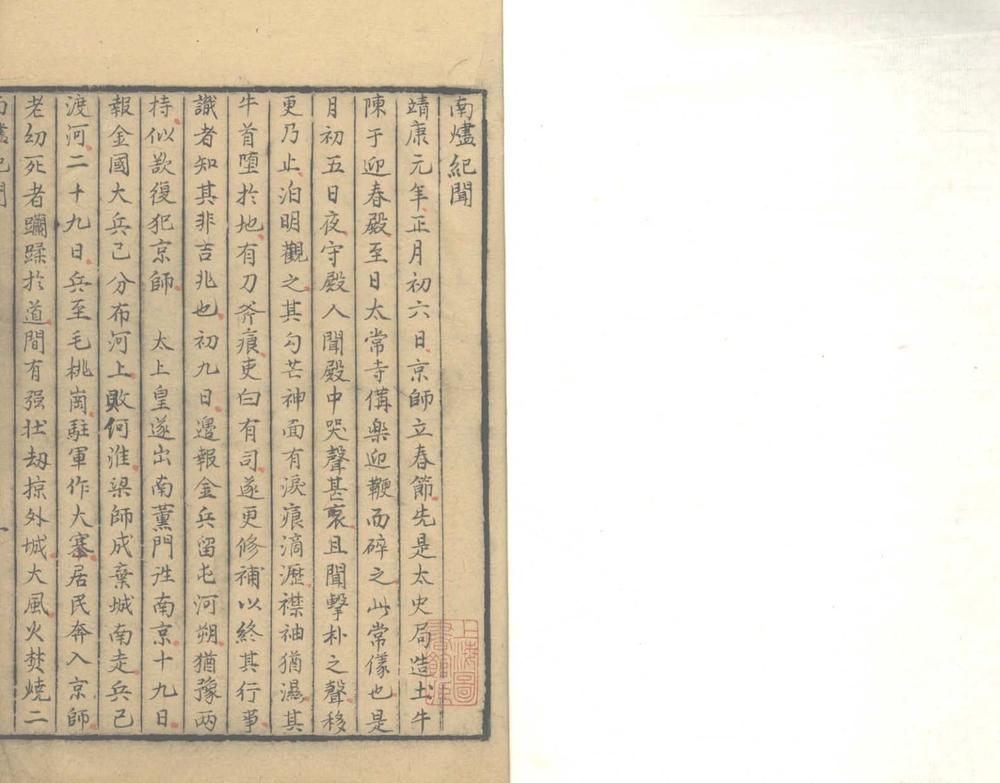 南燼紀聞
靖康元年正月初六日京師立春節先是太史局造土牛
陳于迎春殿至日太常寺備樂迎鞭而碎之此常儀也是
月初五日夜守殿人聞殿中哭聲甚哀且聞擊朴之聲移
更乃止洎明觀之其勾芒神面有淚痕滴瀝襟袖猶濕其
牛首墮於地有刀斧痕吏曰有司遂更修補以終其行事
識者知其非吉兆也初九日邊報金兵留屯河朔猶豫兩
持似欲復犯京師　太上皇遂出南薰門往南京十九日
報金國大兵已分布河上敗何淮梁師成棄城南走兵已
渡河二十九日兵至毛桃崗駐軍作大寨居民奔入京師
老幼死者躪蹂於道間有强壯刼掠外城大風火焚燒二
南燼紀聞
一
上海圖書館藏